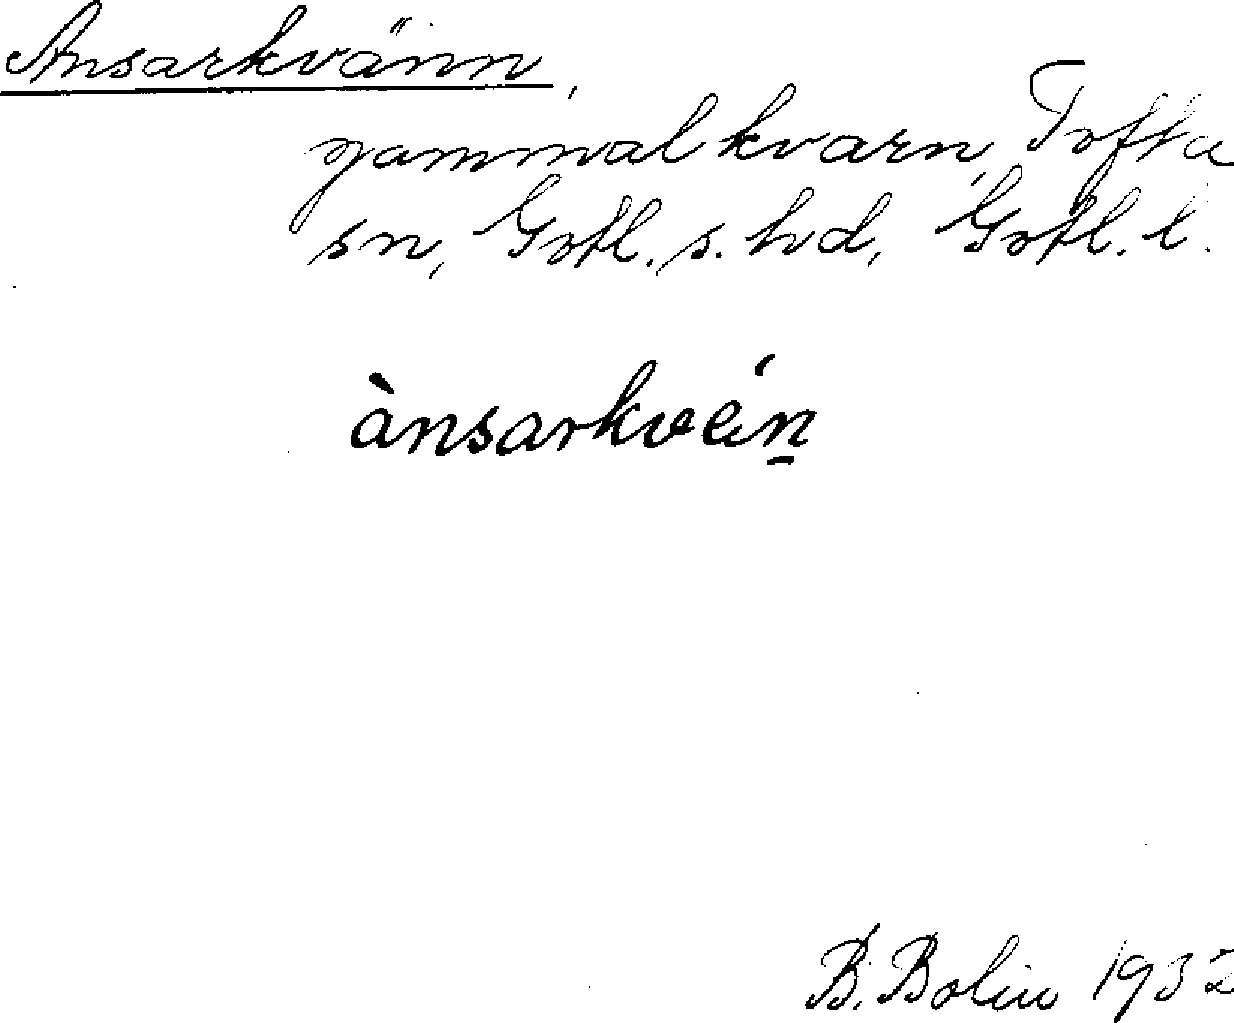 Ansarkvänn,
gammal kvarn, Tofta
sn, Gotl. s. hd, Gotl. l.
ànsarkvén̲
B. Bolin 1932